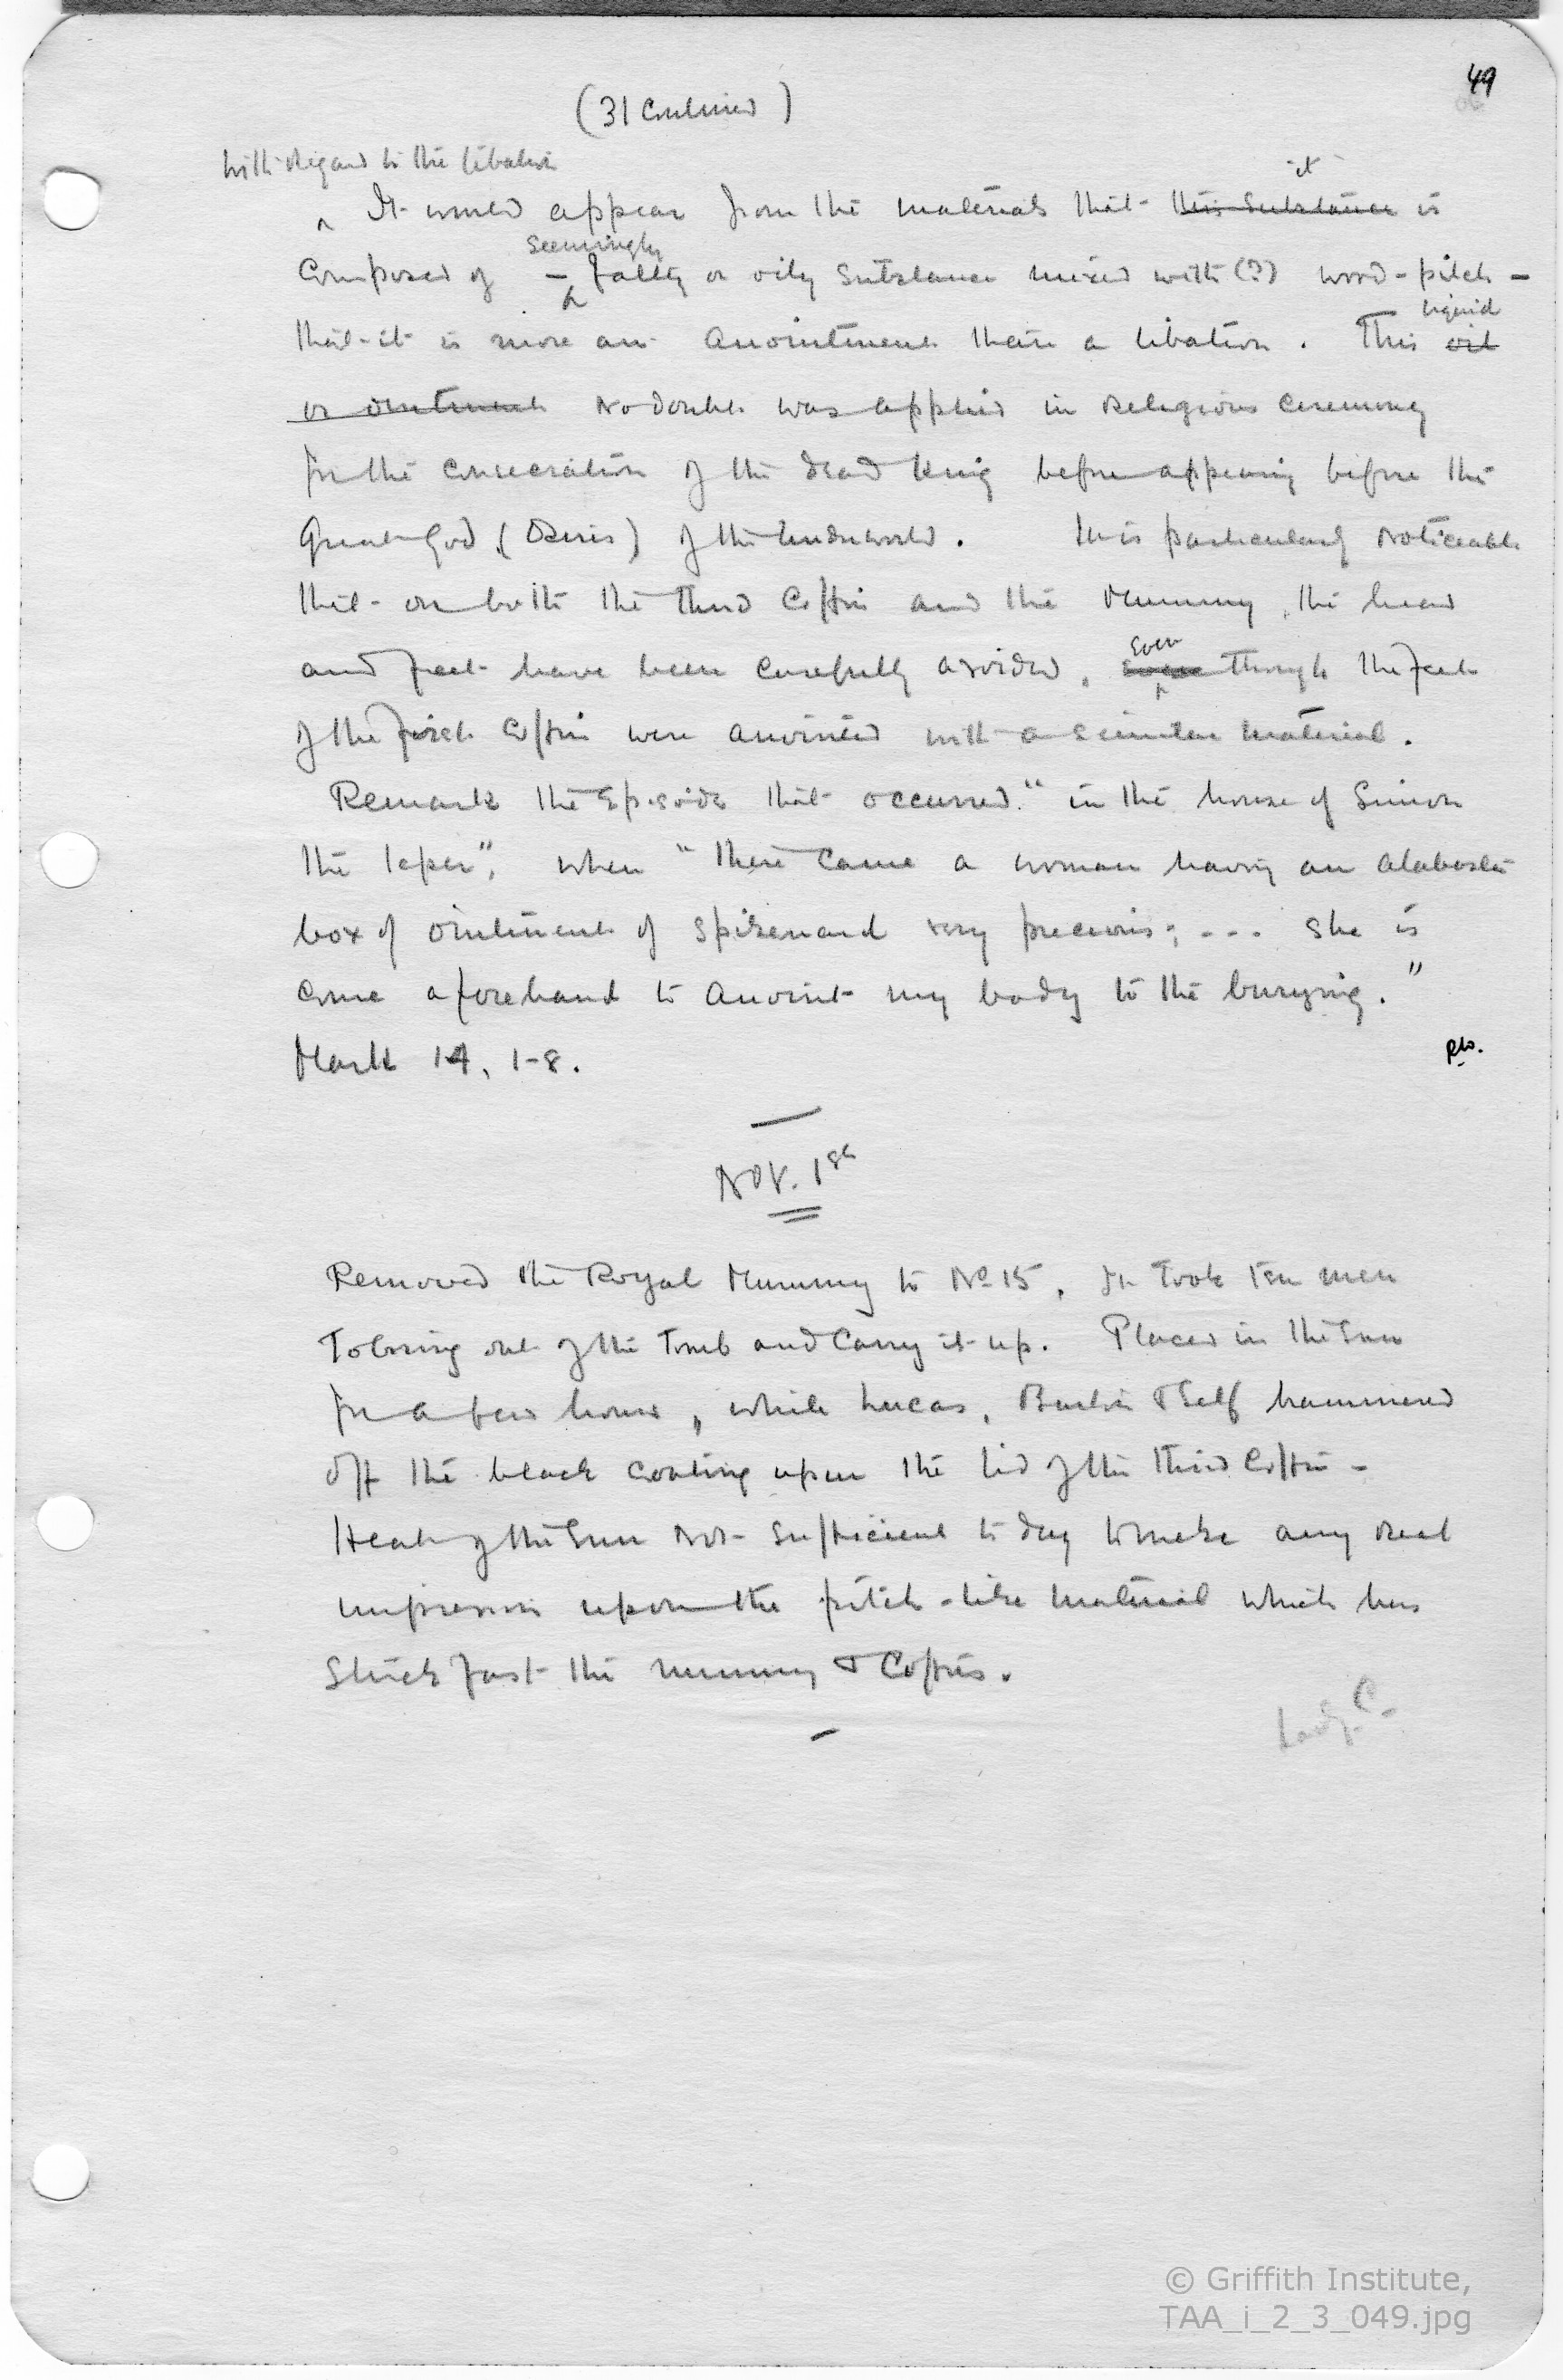 49
(31 Continued)
With regard to the libation
It would appear from the materials that this substance it is
Composed of – seemingly fatty or oily substance mixed with (?) wood-pitch –
that it is more an anointment than a libation. This oil liquid
or ointment no doubt was applied in religious ceremony
for the consecration of the dead King before appearing before the
Great God (Osiris) of the Underworld. It is particularly noticeable
that on both the third Coffin and the Mummy, the head
and feet have been carefully avoided, even though the feet
of the first Coffin were anointed with a similar material.
Remark the Episode that occurred "in the house of Simon
the leper", when "there came a woman having an alabaster
box of ointment of spikenard very precious; --- She is
come aforehand to anoint my body to the burying."
Mark 14, 1-8.
PTO.
NOV. 1st
Removed the Royal Mummy to No 15. It took ten men
to bring out of the tomb and carry it up. Placed in the sun
for a few hours, while Lucas, Burton & self hammered
off the black coating upon the lid of the third Coffin –
Heat of the Sun not sufficient to day to make any real
impression upon the pitch-like material which has
stuck fast the mummy & Coffins.
Lady C-
© Griffith Institute,
TAA_i_2_3_049.jpg